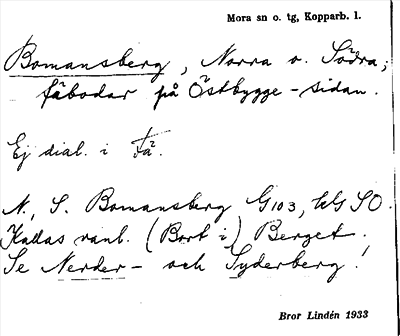 Mora sn o. tg, Kopparb. l.
Bomansberg, Norra o. Södra,
fäbodar på Östbygge-sidan.
Ej dial. i Fä.
N., S. Bomansberg G103, kG SO.
Kallas vanl. (Bort i) Berget.
Se Nerder- och Syderberg!
Bror Lindén 1933